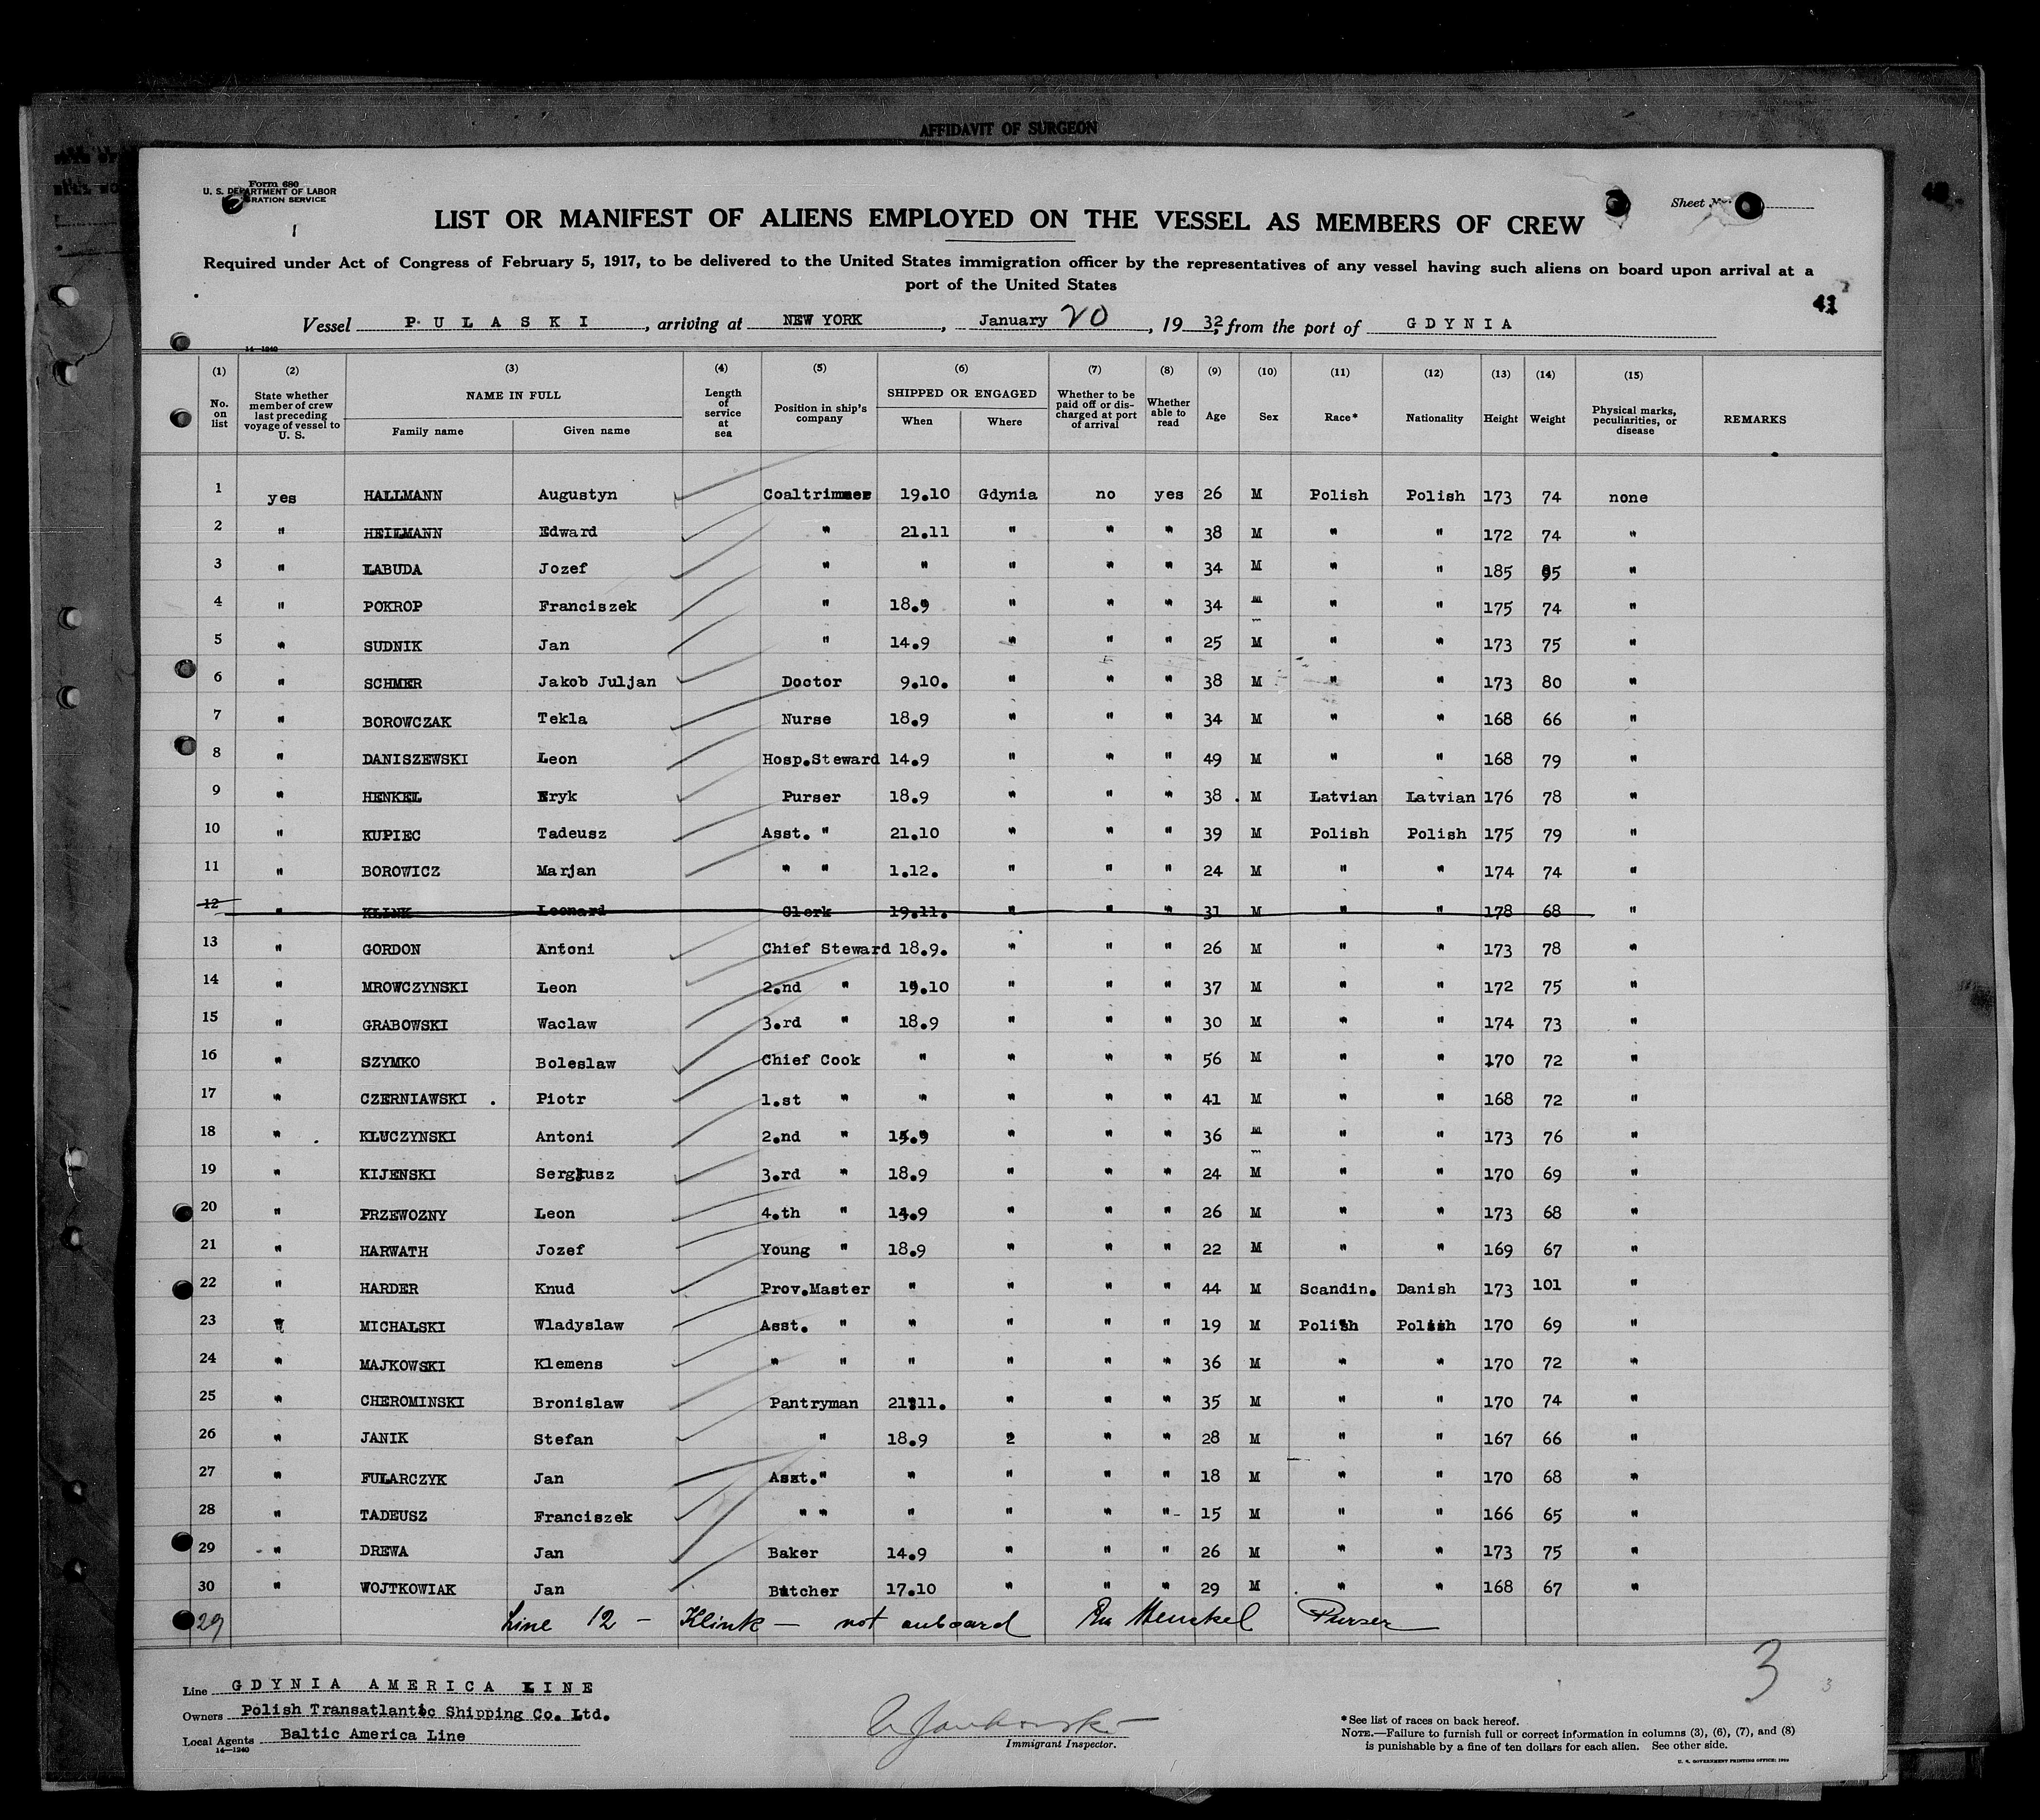 AFFIDAVIT OF SURGEON
Form 680
U. S. DEPARTMENT OF LABOR
GRATION SERVICE
Sheet No.
1
LIST OR MANIFEST OF ALIENS EMPLOYED ON THE VESSEL AS MEMBERS OF CREW
Required under Act of Congress of February 5, 1917, to be delivered to the United States immigration officer by the representatives of any vessel having such aliens on board upon arrival at a
port of the United States
41
Vessel PULASKI, arriving at NEW YORK, January 20, 1932, from the port of GDYNIA
14—1240
(1) (2) (3) (4) (5) (6) (7) (8) (9) (10) (11) (12) (13) (14) (15)
No. on list State whether member of crew last preceding voyage of vessel to U. S. NAME IN FULL Family name Given name Length of service at sea Position in ship's company SHIPPED OR ENGAGED When Where Whether to be paid off or discharged at port of arrival Whether able to read Age Sex Race* Nationality Height Weight Physical marks, peculiarities, or disease REMARKS
1 yes HALLMANN Augustyn Coaltrimmer 19.10 Gdynia no yes 26 M Polish Polish 173 74 none
2 " HEILMANN Edward " 21.11 " " " 38 M " " 172 74 "
3 " LABUDA Jozef " " " " " 34 M " " 185 95 "
4 " POKROP Franciszek " 18.9 " " " 34 M " " 175 74 "
5 " SUDNIK Jan " 14.9 " " " 25 M " " 173 75 "
6 " SCHMER Jakob Juljan Doctor 9.10. " " " 38 M " " 173 80 "
7 " BOROWCZAK Tekla Nurse 18.9 " " " 34 M " " 168 66 "
8 " DANISZEWSKI Leon Hosp.Steward 14.9 " " " 49 M " " 168 79 "
9 " HENKEL Eryk Purser 18.9 " " " 38 M Latvian Latvian 176 78 "
10 " KUPIEC Tadeusz Asst. " 21.10 " " " 39 M Polish Polish 175 79 "
11 " BOROWICZ Marjan " " 1.12. " " " 24 M " " 174 74 "
12 " KLINK Leonard Clerk 19.11. " " " 31 M " " 178 68 "
13 " GORDON Antoni Chief Steward 18.9. " " " 26 M " " 173 78 "
14 " MROWCZYNSKI Leon 2.nd " 19.10 " " " 37 M " " 172 75 "
15 " GRABOWSKI Waclaw 3.rd " 18.9 " " " 30 M " " 174 73 "
16 " SZYMKO Boleslaw Chief Cook " " " " 56 M " " 170 72 "
17 " CZERNIAWSKI Piotr 1.st " " " " " 41 M " " 168 72 "
18 " KLUCZYNSKI Antoni 2.nd " 15.9 " " " 36 M " " 173 76 "
19 " KIJENSKI Sergjusz 3.rd " 18.9 " " " 24 M " " 170 69 "
20 " PRZEWOZNY Leon 4.th " 14.9 " " " 26 M " " 173 68 "
21 " HARWATH Jozef Young " 18.9 " " " 22 M " " 169 67 "
22 " HARDER Knud Prov.Master " " " " 44 M Scandin. Danish 173 101 "
23 " MICHALSKI Wladyslaw Asst. " " " " " 19 M Polish Polish 170 69 "
24 " MAJKOWSKI Klemens " " " " " " 36 M " " 170 72 "
25 " CHEROMINSKI Bronislaw Pantryman 21.11. " " " 35 M " " 170 74 "
26 " JANIK Stefan " 18.9 " " " 28 M " " 167 66 "
27 " FULARCZYK Jan Asst." " " " " 18 M " " 170 68 "
28 " TADEUSZ Franciszek " " " " " " 15 M " " 166 65 "
29 " DREWA Jan Baker 14.9 " " " 26 M " " 173 75 "
30 " WOJTKOWIAK Jan Butcher 17.10 " " " 29 M " " 168 67 "
29 Line 12 — Klink — not onboard Purser
3
Line GDYNIA AMERICA LINE
Owners Polish Transatlantic Shipping Co. Ltd.
Local Agents Baltic America Line
14—1240
Immigrant Inspector.
*See list of races on back hereof.
NOTE.—Failure to furnish full or correct information in columns (3), (6), (7), and (8)
is punishable by a fine of ten dollars for each alien. See other side.